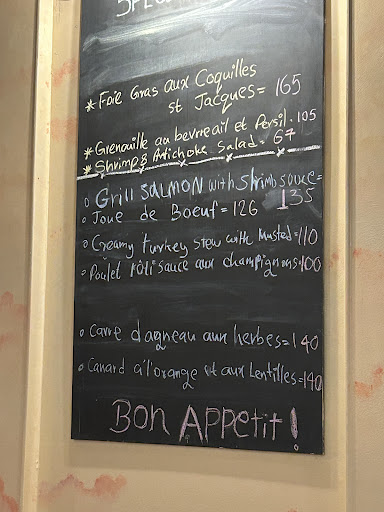 * Foie Gras aux Coquilles
st Jacques = 165
* Grenouille au bevrreail et Persil . 105
* Shrimp & Artichoke Salad . 67
o Grill Salmon with shrimb souce =
135
o Joue de Boeuf = 126
o Creamy turkey stew with Musted = 110
o Poulet rôti sauce aux champignons = 100
o Carre d'agneau aux herbes = 140
o Canard a l'orange et aux Lentilles = 140
Bon Appetit!